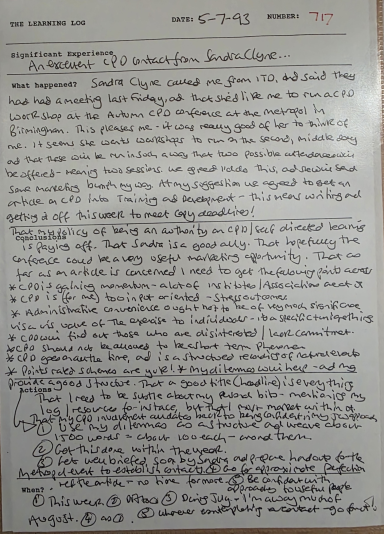 THE LEARNING LOG DATE: 5-7-93 NUMBER: 717
Significant Experience
An excellent CPD contact from Sandra Clyne...
What happened? Sandra Clyne called me from ITD, and said they
had had a meeting last Friday, and that she'd like me to run a CPD
workshop at the Autumn CPD conference at the Metropol in
Birmingham. This pleases me - it was really good of her to think of
me. It seems she wants workshops to run on the second, middle day
and that these will be run in such a way that two possible attendances will
be offered - meaning two sessions. We agreed
save marketing my way. At my suggestion we agreed to get an
article on CPD into Training and Development - this means writing and
getting it off this week to meet copy deadlines!
That my policy of being an authority on CPD / self directed learning
Conclusions
is paying off. That Sandra is a good ally. That hopefully the
conference could be a very useful marketing opportunity. That as
far as an article is concerned I need to get the following points across
* CPD is gaining momentum - a lot of institutes/Associations are at it
* CPD is (for me) too input oriented - stress outcomes
* Administrative convenience ought not to be of very much significance
vis a vis value of the exercise to individuals - it's
* CPD must find out those who are disinterested / lack commitment
* CPD should not be allowed to be a short term phenomenon
* CPD goes on all the time, and is a structured recording of natural events
* Points rated schemes are yuk! * My dilemmas will help - and may
provide a good structure. That a good title (headline) is everything
Actions
That I need to be subtle about my personal bits - mentioning my
log / resource for instance, but that I may market within it
That my CPD involvement
① Use my dilemmas as a structure and weave about
1500 words = about 100 each - around them.
② Get this done within the year.
③ Get well briefed soon by Sandra and prepare handouts for the
Metropol event to establish contacts. ④ Go for approximate perfection
- no time for more. ⑤ Be confident with
approaches to useful people
When?
① This week. ② ③ During July - I'm away much of
August. ④ as ② ⑤ whenever contemplating a contact - go for it!